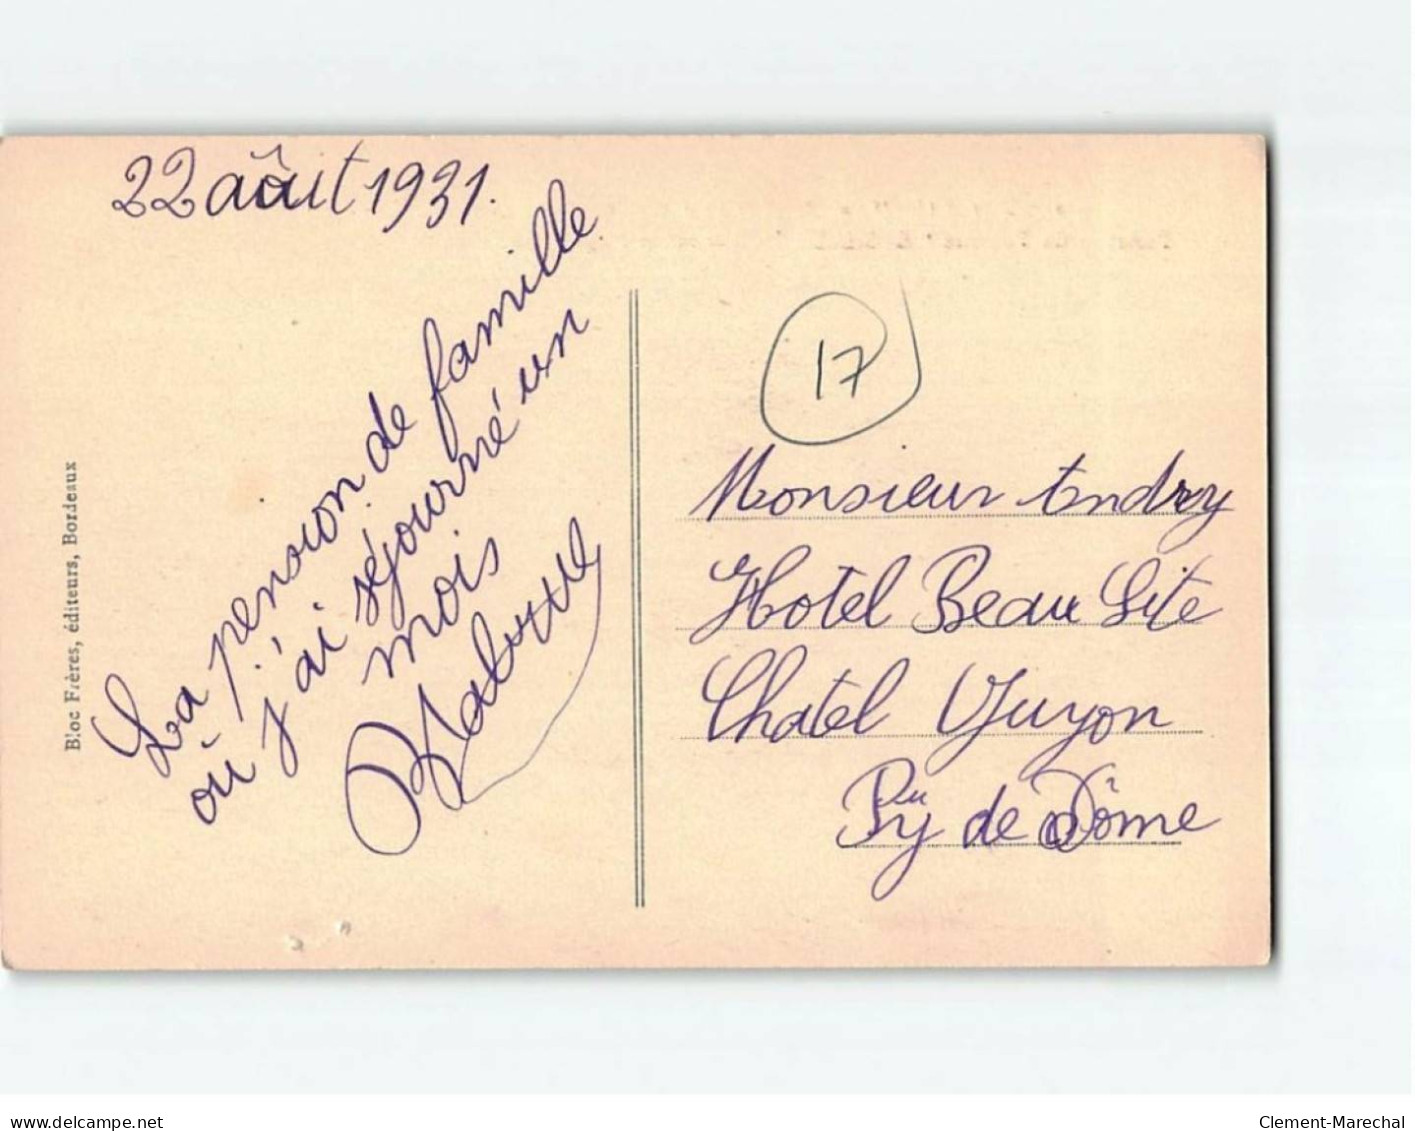 22 aôut 1931.
La pension de famille
où j'ai séjourné un
mois
Bloc Frères, éditeurs, Bordeaux
17
Monsieur Andry
Hotel Beau Site
Chatel Guyon
Puy de Dôme
delcampe.net
Clement-Marechal